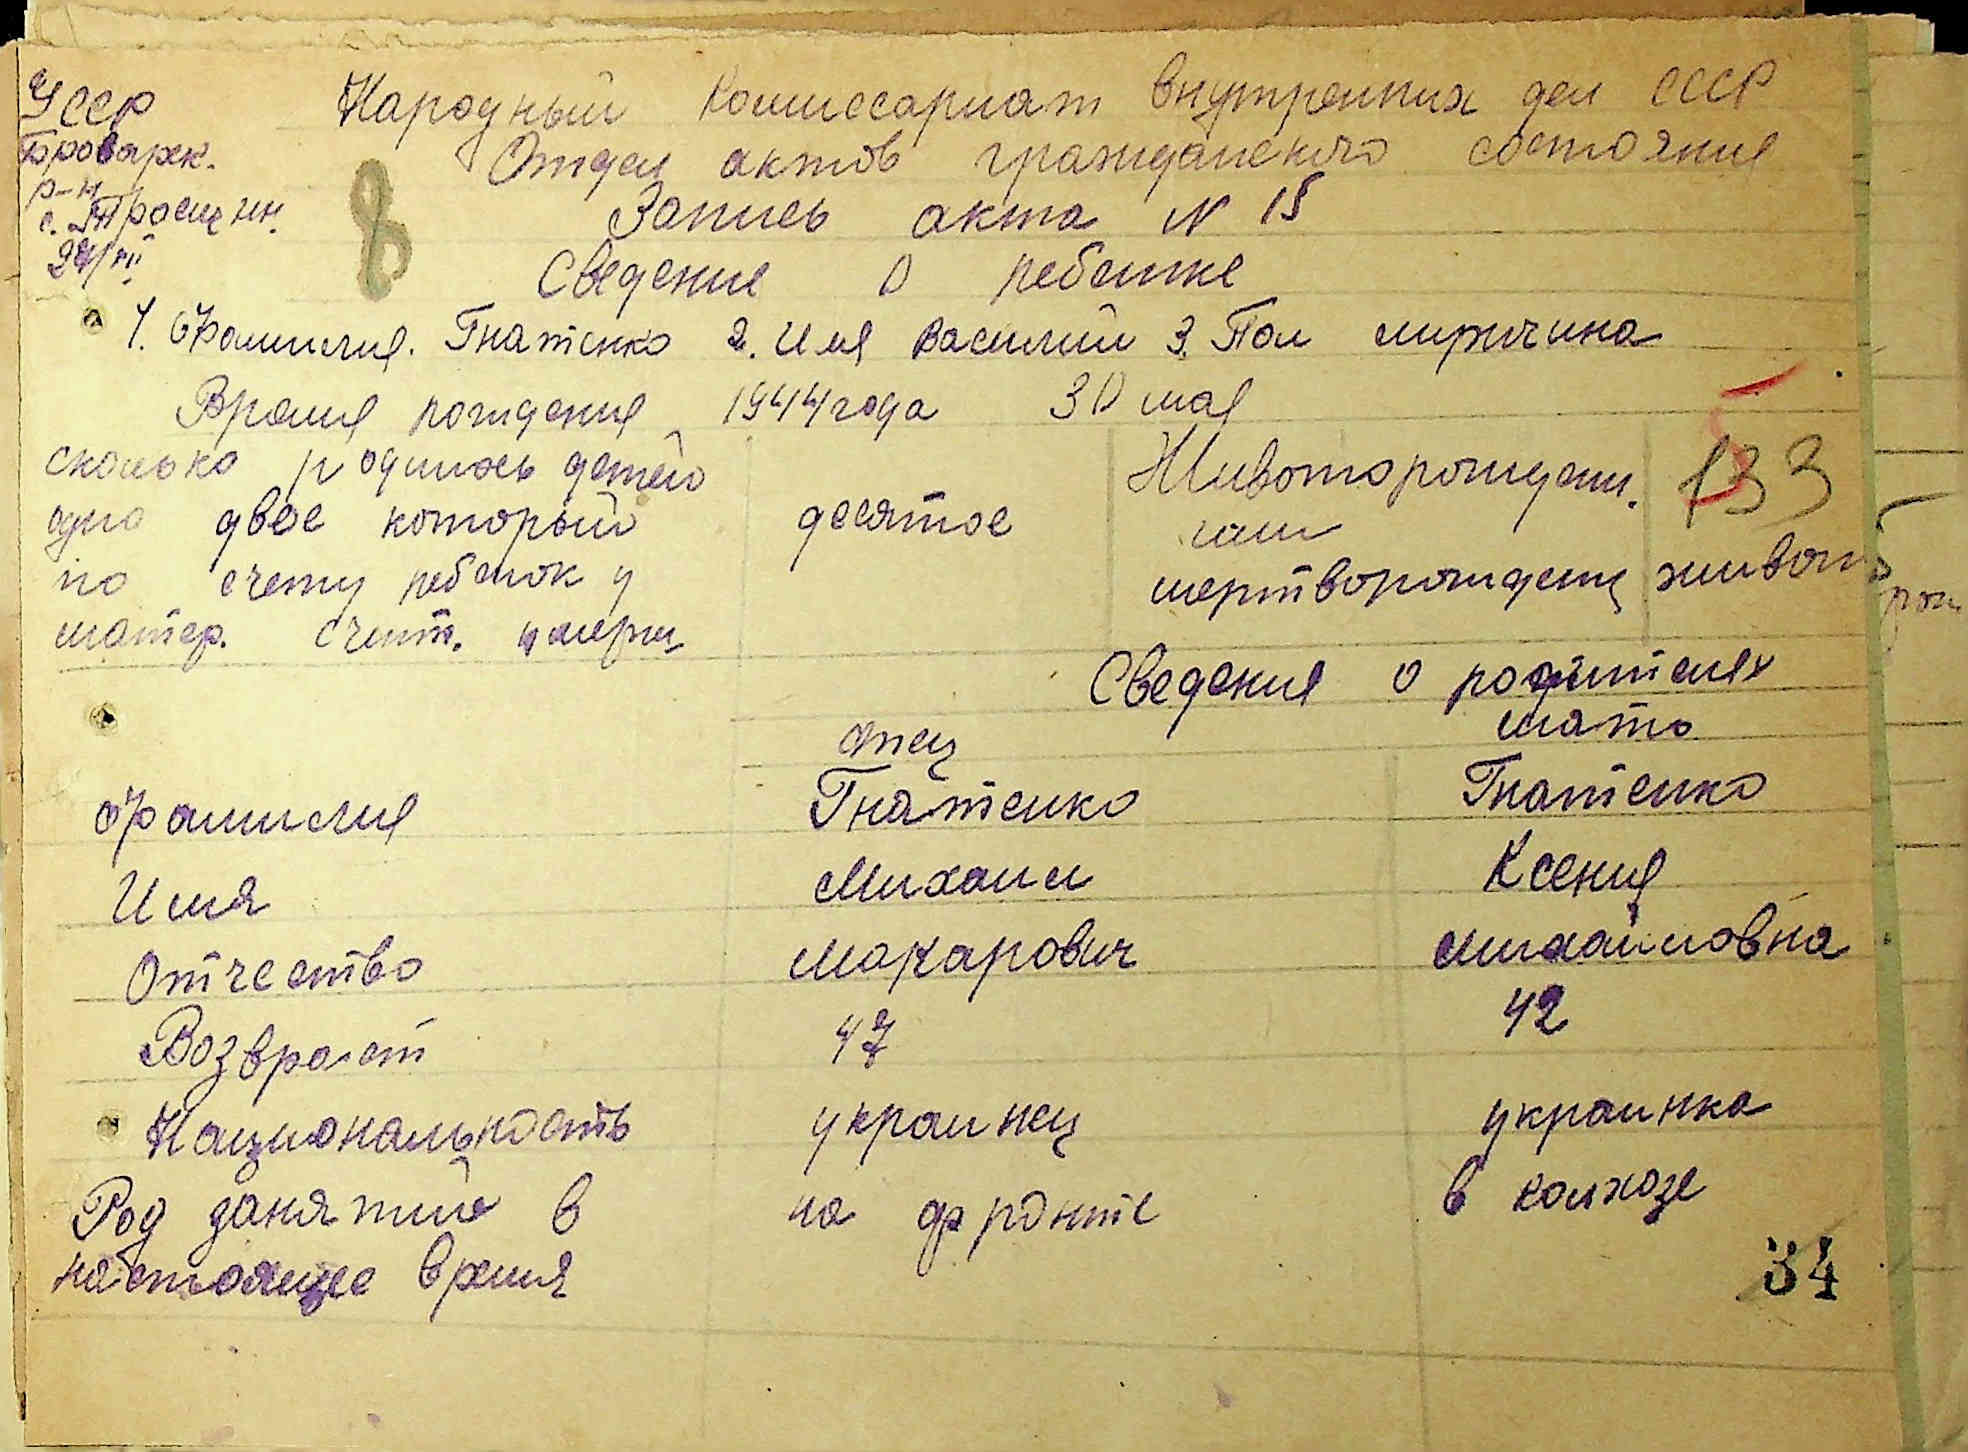 УССР
Броварск.
р-н
с. Троещин.
Народный Комиссариат внутренних дел СССР
Отдел актов гражданского состояния
8
Запись акта N 15
Сведение о ребенке
1. Фамилия. Гнатенко 2. Имя Василий 3. Пол мужчина
Время рождения 1944 года 30 мая
сколько родилось детей
одно двое который
по счету ребенок у
матер. счит. умерш.
десятое
Животорожден.
или
мертворожден
133
живот
Сведения о родителях
отец мать
Фамилия Гнатенко Гнатенко
Имя Михаил Ксения
Отчество Макарович Михайловна
Возвраст 47 42
Национальность украинец украинка
Род занятий в на фронте в колхозе
настоящее время
34